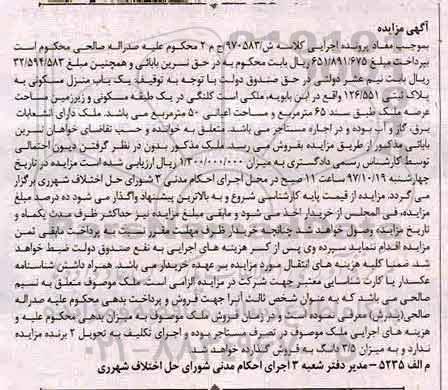 آگهی مزایده
بموجب مفاد پرونده اجرایی کلاسه ش/۹۷۰۵۸۳ج م ۲ محکوم علیه صدراله صالحی محکوم است
بپرداخت مبلغ ۶۵۱/۸۹۱/۶۷۵ ریال بابت محکوم به در حق نسرین بابائی و همچنین مبلغ ۳۲/۵۹۴/۵۸۳
ریال بابت نیم عشر دولتی در حق صندوق دولت با توجه به توقیف یک باب منزل مسکونی به
پلاک ثبتی ۱۲۶/۵۵۱ واقع در ابن بابویه، ملکی است کلنگی در یک طبقه مسکونی و زیرزمین مساحت
عرصه ملک طبق سند ۶۵ مترمربع و مساحت اعیانی ۵۰ مترمربع می باشد. ملک دارای انشعابات
برق، گاز و آب بوده و در اجاره مستاجر می باشد. متعلق به خوانده و حسب تقاضای خواهان نسرین
بابائی مذکور از طریق مزایده بفروش می رسد. ملک مذکور بدون در نظر گرفتن دیون احتمالی
توسط کارشناس رسمی دادگستری به میزان ۱/۳۰۰/۰۰۰/۰۰۰ ریال ارزیابی شده است مزایده در تاریخ
چهارشنبه ۹۷/۱۰/۱۹ ساعت ۱۱ صبح در محل اجرای احکام مدنی ۳ شورای حل اختلاف شهرری برگزار
می گردد. مزایده از قیمت پایه کارشناسی شروع و به بالاترین پیشنهاد واگذار می شود ده درصد مبلغ
مزایده، فی المجلس از خریدار اخذ می شود و مابقی مبلغ مزایده نیز حداکثر ظرف مدت یکماه و
تاریخ مزایده وصول خواهد شد. چنانچه خریدار ظرف مهلت مقرر نسبت به پرداخت مابقی ثمن
مزایده اقدام ننماید سپرده وی پس از کسر هزینه های اجرایی به نفع صندوق دولت ضبط خواهد
شد. ضمنا کلیه هزینه های انتقال مورد مزایده بر عهده خریدار می باشد. همراه داشتن شناسنامه
عکسدار یا کارت شناسایی معتبر جهت شرکت در مزایده الزامی است. ملک موصوف متعلق به نسیم
صالحی می باشد که به عنوان شخص ثالث آنرا جهت فروش و پرداخت بدهی محکوم علیه صدراله
صالحی(پدرش) معرفی نموده است و در زمان فروش ملک موصوف به میزان بدهی محکوم علیه و
هزینه های اجرایی ملک موصوف در تصرف مستاجر بوده و اجرای تکلیف به تحویل ۲ برنده مزایده
ندارد و به میزان ۳/۵ دانگ به فروش گذارده خواهد شد
م الف ۵۲۳۵ – مدیر دفتر شعبه ۳ اجرای احکام مدنی شورای حل اختلاف شهرری